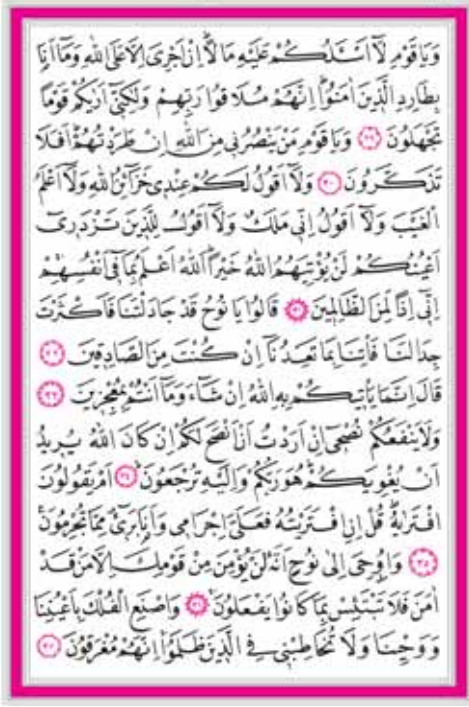 وَيَا قَوْمِ لَٓا اَسْـَٔلُكُمْ عَلَيْهِ مَالًاۜ اِنْ اَجْرِيَ اِلَّا عَلَى اللّٰهِ وَمَٓا اَنَا۬
بِطَارِدِ الَّذ۪ينَ اٰمَنُواۜ اِنَّهُمْ مُلَاقُوا رَبِّهِمْ وَلٰكِنّ۪ٓي اَرٰيكُمْ قَوْمًا
تَجْهَلُونَ ﴿٢٩﴾ وَيَا قَوْمِ مَنْ يَنْصُرُن۪ي مِنَ اللّٰهِ اِنْ طَرَدْتُهُمْۜ اَفَلَا
تَذَكَّرُونَ ﴿٣٠﴾ وَلَٓا اَقُولُ لَكُمْ عِنْد۪ي خَزَٓائِنُ اللّٰهِ وَلَٓا اَعْلَمُ
الْغَيْبَ وَلَٓا اَقُولُ اِنّ۪ي مَلَكٌ وَلَٓا اَقُولُ لِلَّذ۪ينَ تَزْدَر۪ٓي
اَعْيُنُكُمْ لَنْ يُؤْتِيَهُمُ اللّٰهُ خَيْرًاۜ اَللّٰهُ اَعْلَمُ بِمَا ف۪ٓي اَنْفُسِهِمْۚ
اِنّ۪ٓي اِذًا لَمِنَ الظَّالِم۪ينَ ﴿٣١﴾ قَالُوا يَا نُوحُ قَدْ جَادَلْتَنَا فَاَكْثَرْتَ
جِدَالَنَا فَأْتِنَا بِمَا تَعِدُنَٓا اِنْ كُنْتَ مِنَ الصَّادِق۪ينَ ﴿٣٢﴾
قَالَ اِنَّمَا يَأْت۪يكُمْ بِهِ اللّٰهُ اِنْ شَٓاءَ وَمَٓا اَنْتُمْ بِمُعْجِز۪ينَ ﴿٣٣﴾
وَلَا يَنْفَعُكُمْ نُصْح۪ٓي اِنْ اَرَدْتُ اَنْ اَنْصَحَ لَكُمْ اِنْ كَانَ اللّٰهُ يُر۪يدُ
اَنْ يُغْوِيَكُمْۜ هُوَ رَبُّكُمْ وَاِلَيْهِ تُرْجَعُونَۜ ﴿٣٤﴾ اَمْ يَقُولُونَ
افْتَرٰيهُۜ قُلْ اِنِ افْتَرَيْتُهُ فَعَلَيَّ اِجْرَام۪ي وَاَنَا۬ بَر۪ٓيءٌ مِمَّا تُجْرِمُونَ۟
﴿٣٥﴾ وَاُو۫حِيَ اِلٰى نُوحٍ اَنَّهُ لَنْ يُؤْمِنَ مِنْ قَوْمِكَ اِلَّا مَنْ قَدْ
اٰمَنَ فَلَا تَبْتَئِسْ بِمَا كَانُوا يَفْعَلُونَۚ ﴿٣٦﴾ وَاصْنَعِ الْفُلْكَ بِاَعْيُنِنَا
وَوَحْيِنَا وَلَا تُخَاطِبْن۪ي فِي الَّذ۪ينَ ظَلَمُواۚ اِنَّهُمْ مُغْرَقُونَ ﴿٣٧﴾